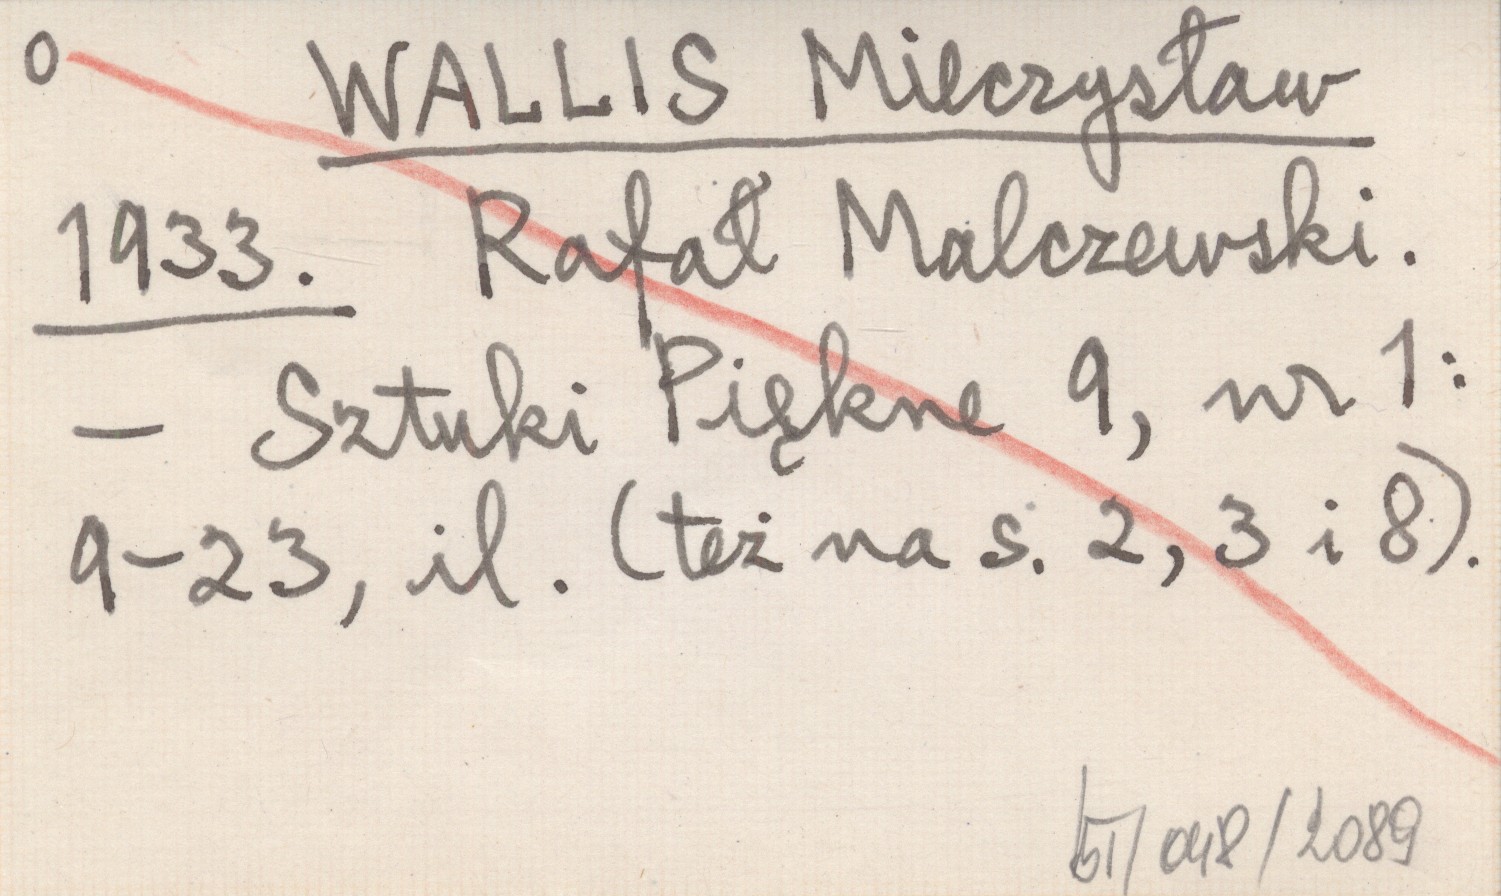 o WALLIS Mieczysław
1933. Rafał Malczewski.
– Sztuki Piękne 9, nr 1:
9–23, il. (też na s. 2, 3 i 8).
/048/2089